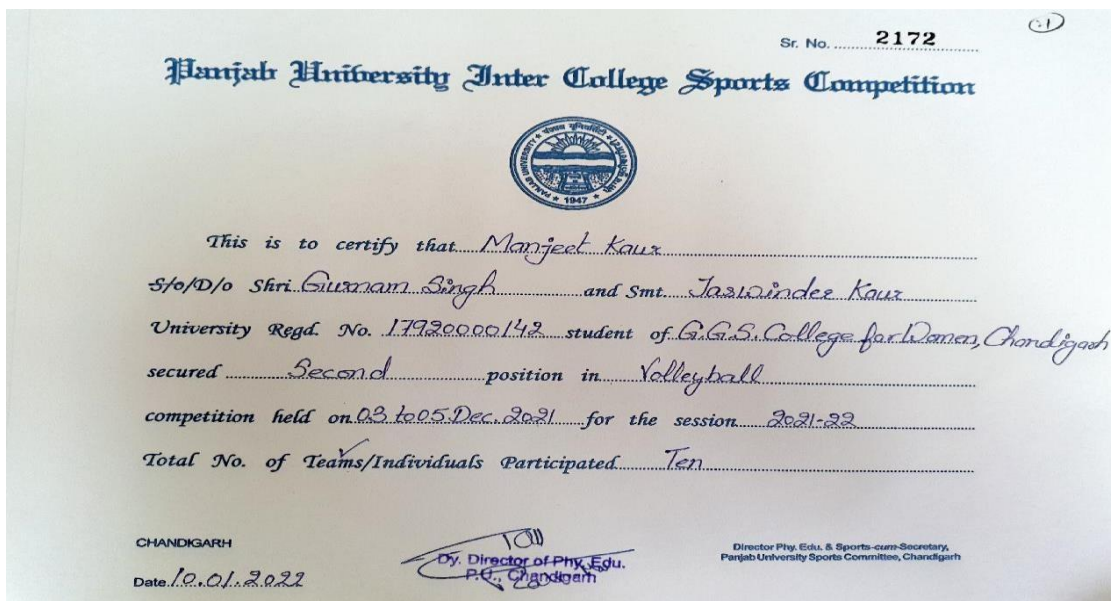 Sr. No. 2172
Panjab University Inter College Sports Competition
PANJAB UNIVERSITY
1947
This is to certify that Manjeet Kaur
S/o/D/o Shri Gurnam Singh and Smt. Jaswinder Kaur
University Regd. No. 17920000142 student of G.G.S. College for Women, Chandigarh
secured Second position in Volleyball
competition held on 03 to 05 Dec. 2021 for the session 2021-22
Total No. of Teams/Individuals Participated Ten
CHANDIGARH
Date 10.01.2022
Dy. Director of Phy. Edu.
P.U., Chandigarh
Director Phy. Edu. & Sports-cum-Secretary,
Panjab University Sports Committee, Chandigarh